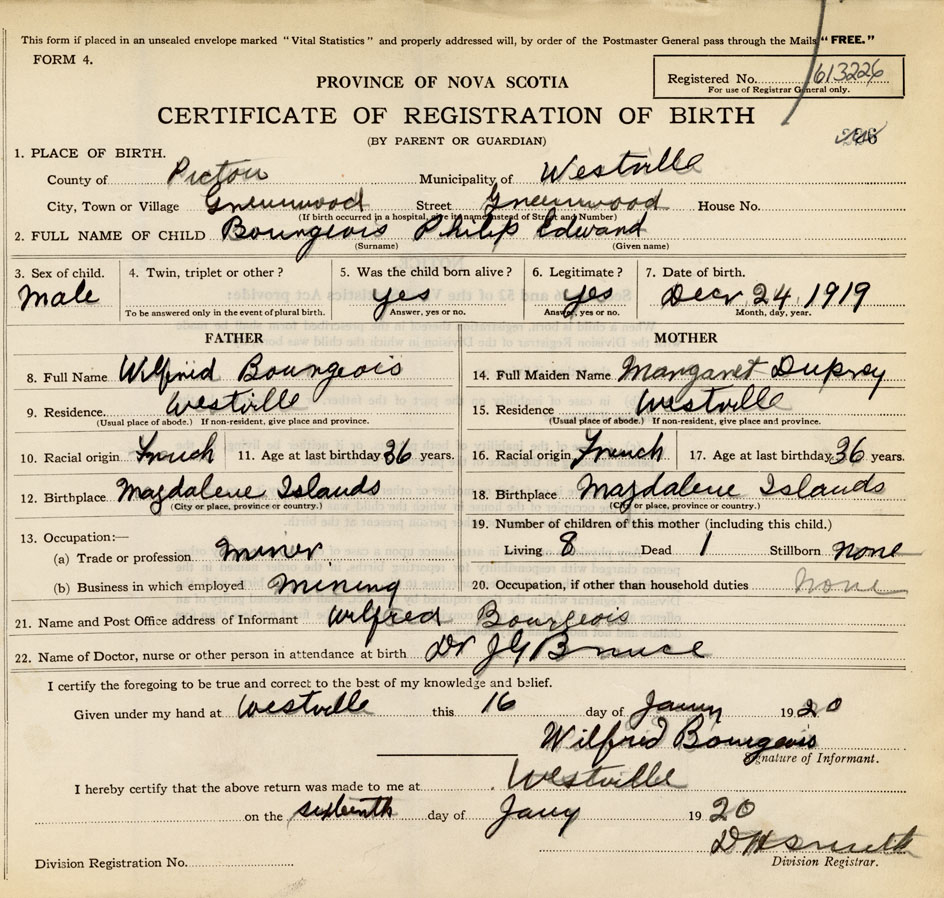 This form if placed in an unsealed envelope marked "Vital Statistics" and properly addressed will, by order of the Postmaster General pass through the Mails "FREE."
FORM 4.
Registered No. 613226
For use of Registrar General only.
PROVINCE OF NOVA SCOTIA
CERTIFICATE OF REGISTRATION OF BIRTH
(BY PARENT OR GUARDIAN)
1. PLACE OF BIRTH.
County of Pictou Municipality of Westville
City, Town or Village Greenwood Street Greenwood House No.
(If birth occurred in a hospital, give its name instead of Street and Number)
2. FULL NAME OF CHILD Bourgeois Philip Edward
(Surname) (Given name)
3. Sex of child. 4. Twin, triplet or other? 5. Was the child born alive? 6. Legitimate? 7. Date of birth.
Male yes yes Decr 24 1919
To be answered only in the event of plural birth. Answer, yes or no. Answer, yes or no. Month, day, year.
FATHER MOTHER
8. Full Name Wilfrid Bourgeois 14. Full Maiden Name Margaret Duprey
9. Residence. Westville 15. Residence Westville
(Usual place of abode.) If non-resident, give place and province. (Usual place of abode.) If non-resident, give place and province.
10. Racial origin French 11. Age at last birthday 36 years. 16. Racial origin French 17. Age at last birthday 36 years.
12. Birthplace Magdalene Islands 18. Birthplace Magdalene Islands
(City or place, province or country.) (City or place, province or country.)
13. Occupation:— 19. Number of children of this mother (including this child.)
(a) Trade or profession. Miner Living 8 Dead 1 Stillborn none
(b) Business in which employed Mining 20. Occupation, if other than household duties None
21. Name and Post Office address of Informant Wilfred Bourgeois
22. Name of Doctor, nurse or other person in attendance at birth Dr J G Bruce
I certify the foregoing to be true and correct to the best of my knowledge and belief.
Given under my hand at Westville this 16 day of Jany 1920
Wilfred Bourgeois
Signature of Informant.
I hereby certify that the above return was made to me at Westville
on the sixteenth day of Jany 1920
D H Smith
Division Registration No. Division Registrar.